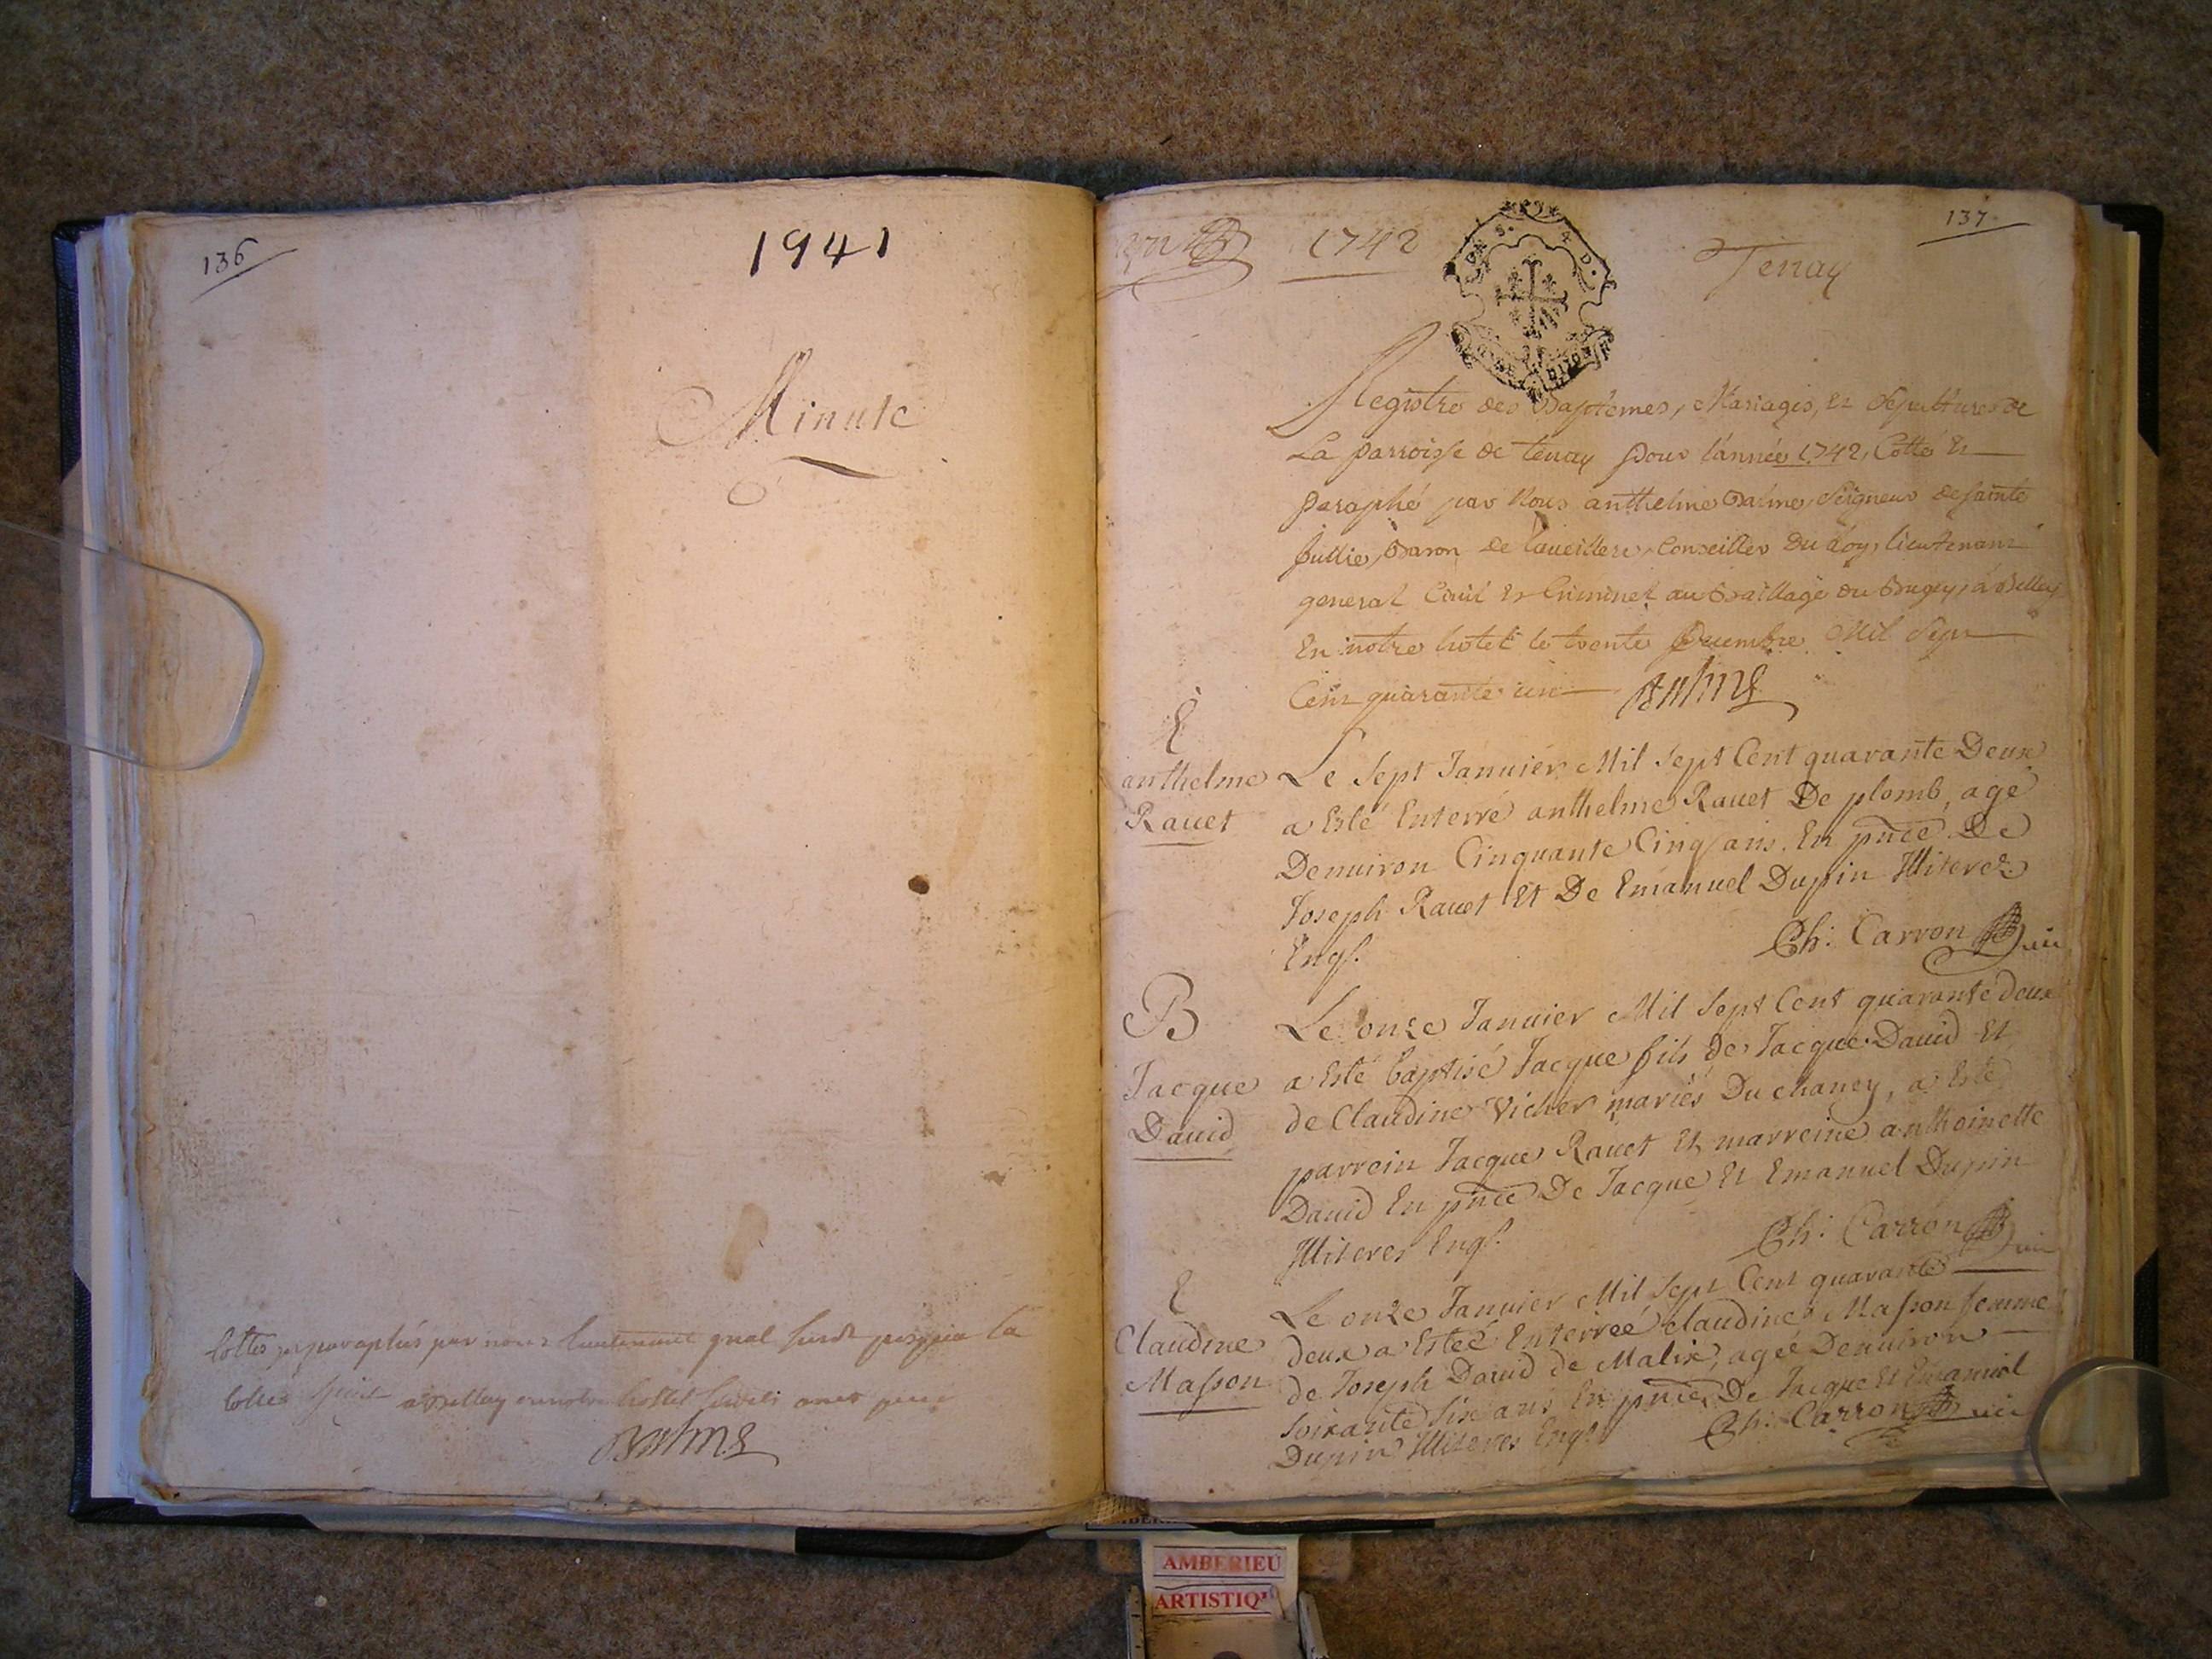 136
1941
Minute
Cottes paraphés par nous lieutenant
a Belley
Balme
137
1742
Tenay
Registre des Baptemes, Mariages, et Sepultures de
La parroisse de tenay pour l'année 1742, Cotté et
paraphé par Nous anthelme Balme, Seigneur de sainte
Jullie, Baron de conseiller Du Roy, lieutenant
general Civil et Criminel au Bailliage du Bugey, a Belley
En notre hotel le trente Decembre Mil Sept
Cent quarante un Balme
E
anthelme
Rauet
Le Sept Januier Mil Sept Cent quarante Deux
a Esté Enterré anthelme Rauet De plomb, agé
Denuiron Cinquante Cinq ans. En pnce De
Joseph Rauet Et De Emanuel Dupin Illiterez
Enqs. Ch: Carron
B
Jacque
Dauid
Le onze Januier Mil Sept Cent quarante deux
a Esté baptisé Jacque fils de Jacque Dauid Et
de Claudine Vicher mariés Du chaney, a Esté
parrein Jacque Rauet Et marreine anthoinette
Dauid En pnce De Jacque Et Emanuel Dupin
Illiteres Enqs. Ch: Carron
E
Claudine
Masson
Le onze Januier Mil Sept Cent quarante
deux a Esteé Enterreé claudine Masson femme
de Joseph Dauid de Malix, ageé Denuiron
Soixante Six ans En pnce De Jacque Et Emanuel
Dupin Illiteres Enqs. Ch: Carron
AMBERIEU
ARTISTIQ